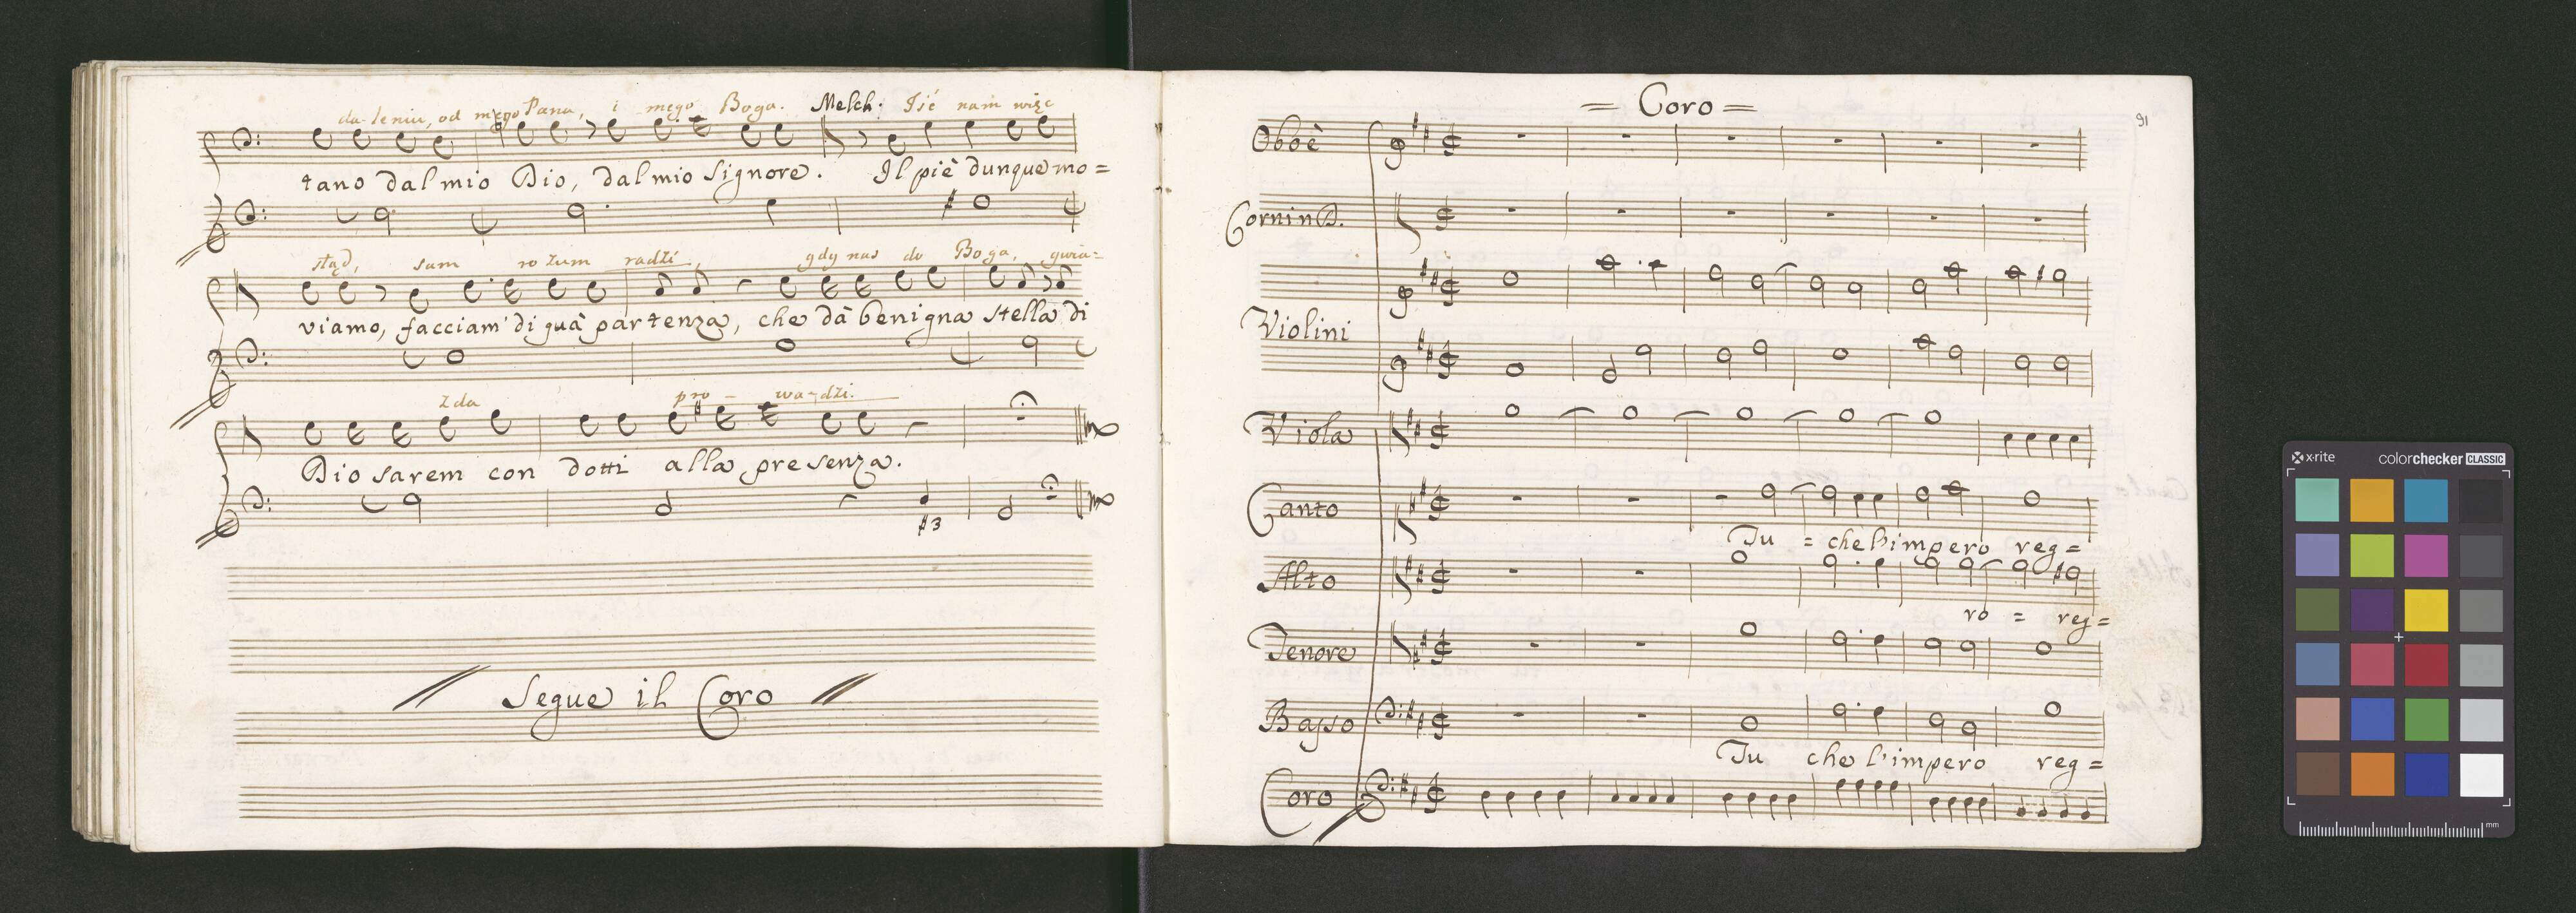 da-leniu, od mego Pana, i mego Boga. Melch: Iść nam więc
tano dal mio Dio, dal mio Signore. Il piè dunque mo=
stąd, sam rozum radzi, gdy nas do Boga, gwia=
viamo, facciam' di quà partenza, che dà benigna stella di
zda pro - wa-dzi.
Dio sarem con dotti alla presenza.
#3
Segue il Coro
= Coro =
91
Oboè
Corni in D.
Violini
Viola
Canto
Tu = che l'impero reg=
Alto
ro = reg=
Tenore
Basso
Tu che l'impero reg=
Coro
x-rite colorchecker CLASSIC
mm